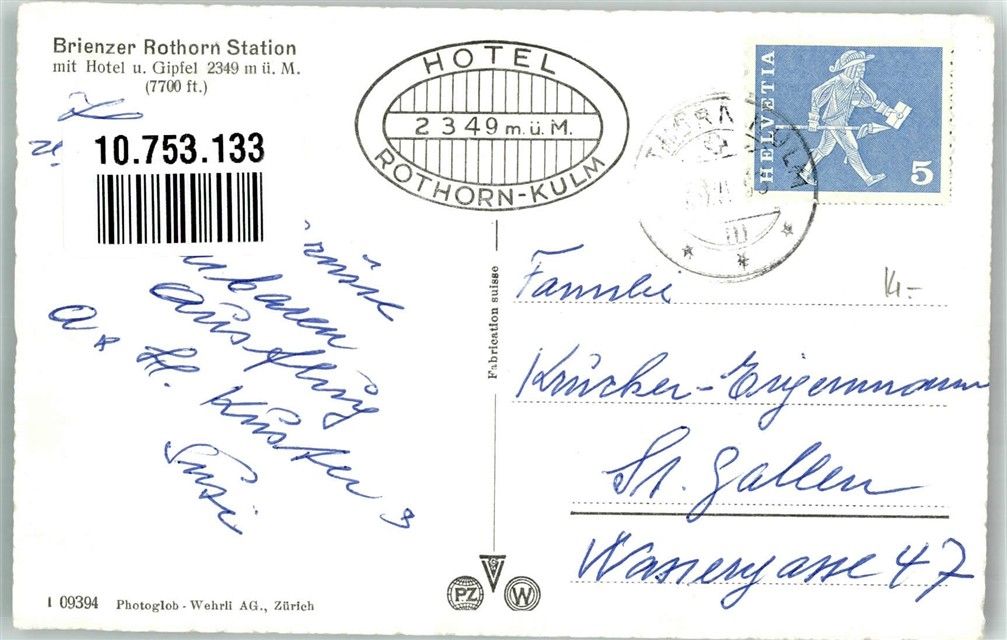 Brienzer Rothorn Station
mit Hotel u. Gipfel 2349 m ü. M.
(7700 ft.)
10.753.133
HOTEL
2349 m.ü.M.
ROTHORN-KULM
HELVETIA
5
Ausflug
A. & H. Kuster &
Susi
Fabrication suisse
Familie
Krücker-Eigenmann
St. Gallen
Wassergasse 47
PZ
W
1 09394 Photoglob-Wehrli AG., Zürich